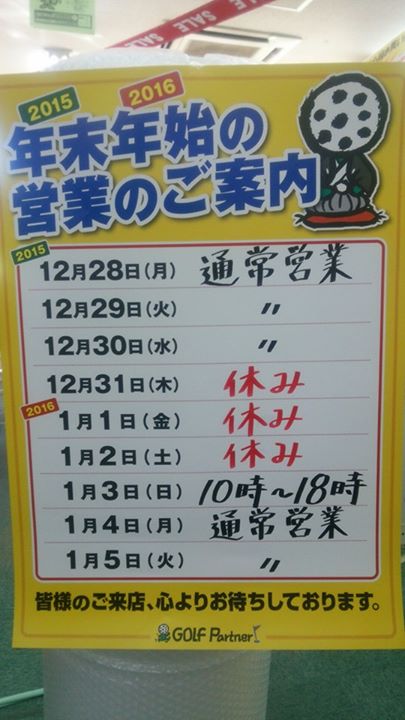 SALE
SALE
2015
2016
年末年始の
営業のご案内
2015
12月28日(月) 通常営業
12月29日(火) 〃
12月30日(水) 〃
12月31日(木) 休み
2016
1月1日(金) 休み
1月2日(土) 休み
1月3日(日) 10時~18時
1月4日(月) 通常営業
1月5日(火) 〃
皆様のご来店、心よりお待ちしております。
GOLF Partner